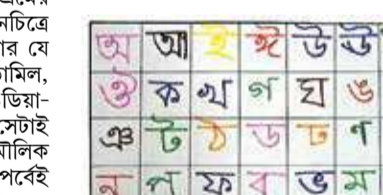 নচিত্রে
ার যে
ামিল,
ডিয়া-
সেটাই
মৌলিক
পর্বেই
অ আ ই ঈ উ ঊ
ঔ ক খ গ ঘ ঙ
ঞ ট ঠ ড ঢ ণ
ন প ফ ব ভ ম